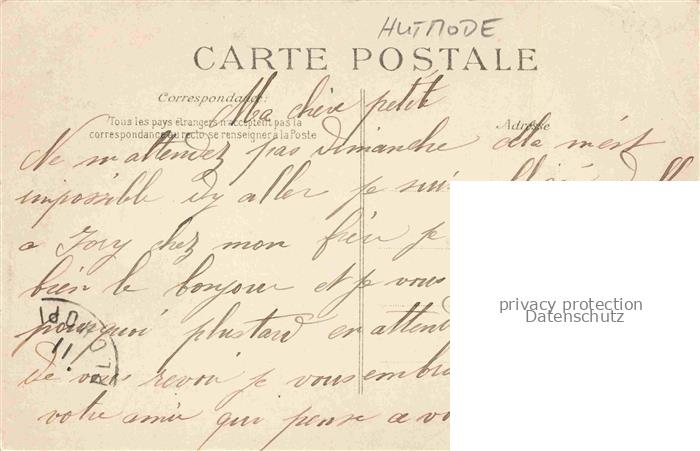 HUTMODE
CARTE POSTALE
Correspondance:
Ma chère petite
Tous les pays étrangers n'acceptent pas la
correspondance au recto, se renseigner à la Poste
Adresse
Ne m'attendez pas dimanche cela m'est
impossible d'y aller je suis
a Ivry chez mon frère je
bien le bonjour et je vous
pourquoi plustard en attend
de vous revoir je vous embra
votre amie qui pense a vo
privacy protection
Datenschutz